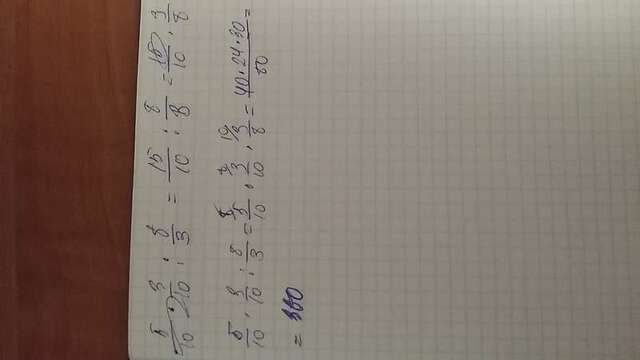 5/10 · 3/10 : 8/3 = 15/10 : 8/8 = 15/10 · 3/8
5/10 · 3/10 : 8/3 = 5/10 · 3/10 · 3/8 = 40·24·30/80 =
=